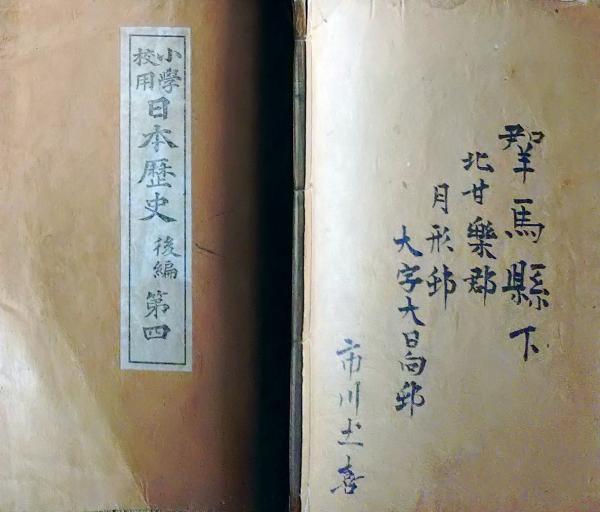 小學校用日本歴史後編第四
羣馬縣下
北甘樂郡
月形邨
大字大日向邨
市川
喜